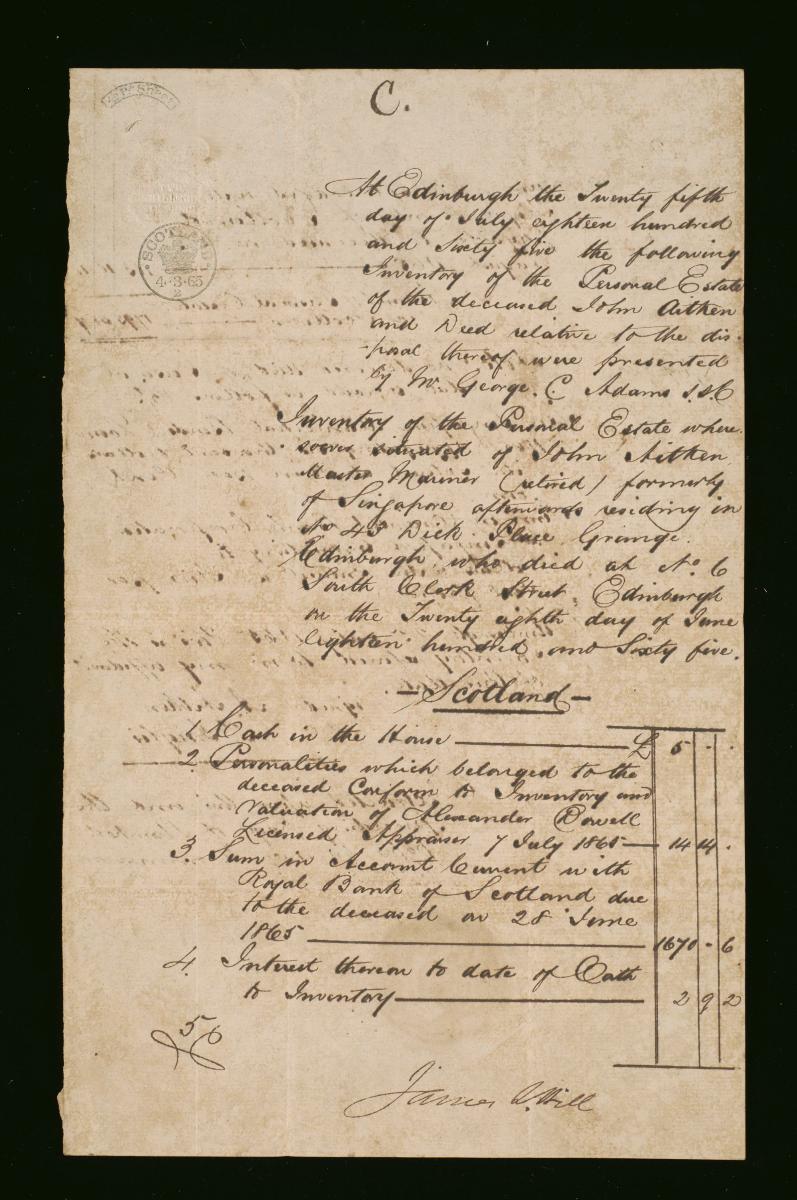 C.
SCOTLAND
4·3·65
2
At Edinburgh the Twenty fifth
day of July eighteen hundred
and Sixty five the following
Inventory of the Personal Estate
of the deceased John Aitken
and Deed relative to the dis-
-posal thereof were presented
by Mr George. C Adams S.S.C
Inventory of the Personal Estate where-
soever situated of John Aitken
Master Mariner (retired) formerly
of Singapore afterwards residing in
No 43 Dick Place Grange.
Edinburgh who died at No. 6
South Clerk Street Edinburgh
on the Twenty eighth day of June
Eighteen hundred and Sixty five.
- Scotland -
1. Cash in the House £ 5 - .
2. Personalities which belonged to the
deceased Conform to Inventory and
Valuation of Alexander Dowell
Licensed Appraiser 7 July 1865 14 14 .
3. Sum in Account Current with
Royal Bank of Scotland due
to the deceased on 28 June
1865 1670 - 6
4. Interest thereon to date of Oath
to Inventory 2 9 2
James Hill